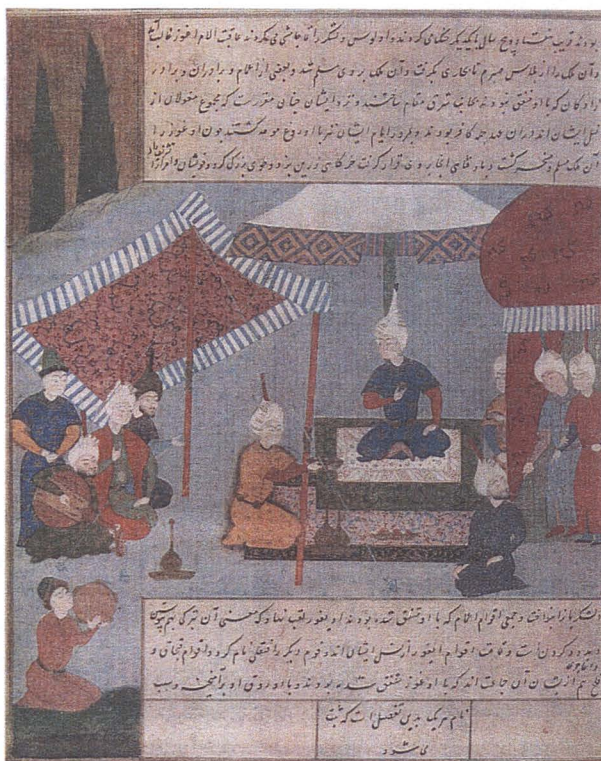 بودند قریب هفتاد و پنج سال با یکدیگر جنگ می کردند و اولوس و لشکر را تاجاشی می کردند عاقبت الامر اغوز غالب آمد
و آن ملک را از تلاس صیرم تا بخاری بگرفت و آن ملک بر وی مسلم شد و بعضی از اعمام و برادران و برادر
زادگان که با او متفق نبودند بجانب شرقی مقام ساختند و نزد ایشان چنان مقررست که مجموع مغولان از
نسل ایشان اند و در آن عهد جمله کافر بودند و بمرور ایام ایشان نیز با اوروغ موحد گشتند چون اغوز را
آن ملک مسلم و مسخر گشت و پادشاهی آنجا بر وی قرار گرفت خرگاهی زرین بزد و طوی بزرگ کرد و خویشان و امرا را
و لشکر را بنواخت و جمعی اقوام اعمام که با او متفق شده بودند اویغور لقب نهاد که معنی آن بترکی بهم پیوستن
و مدد کردن است و تمامت اقوام ایغور از نسل ایشان اند و قوم دیگر را قنقلی نام کرد و اقوام قبچاق و
قلج هم از نسل آن جماعت اند که با اوغوز متفق شده بودند و با اوروق او برآمیخته و سبب
نام هر یک بدین تفصیل است که ثبت
می شود